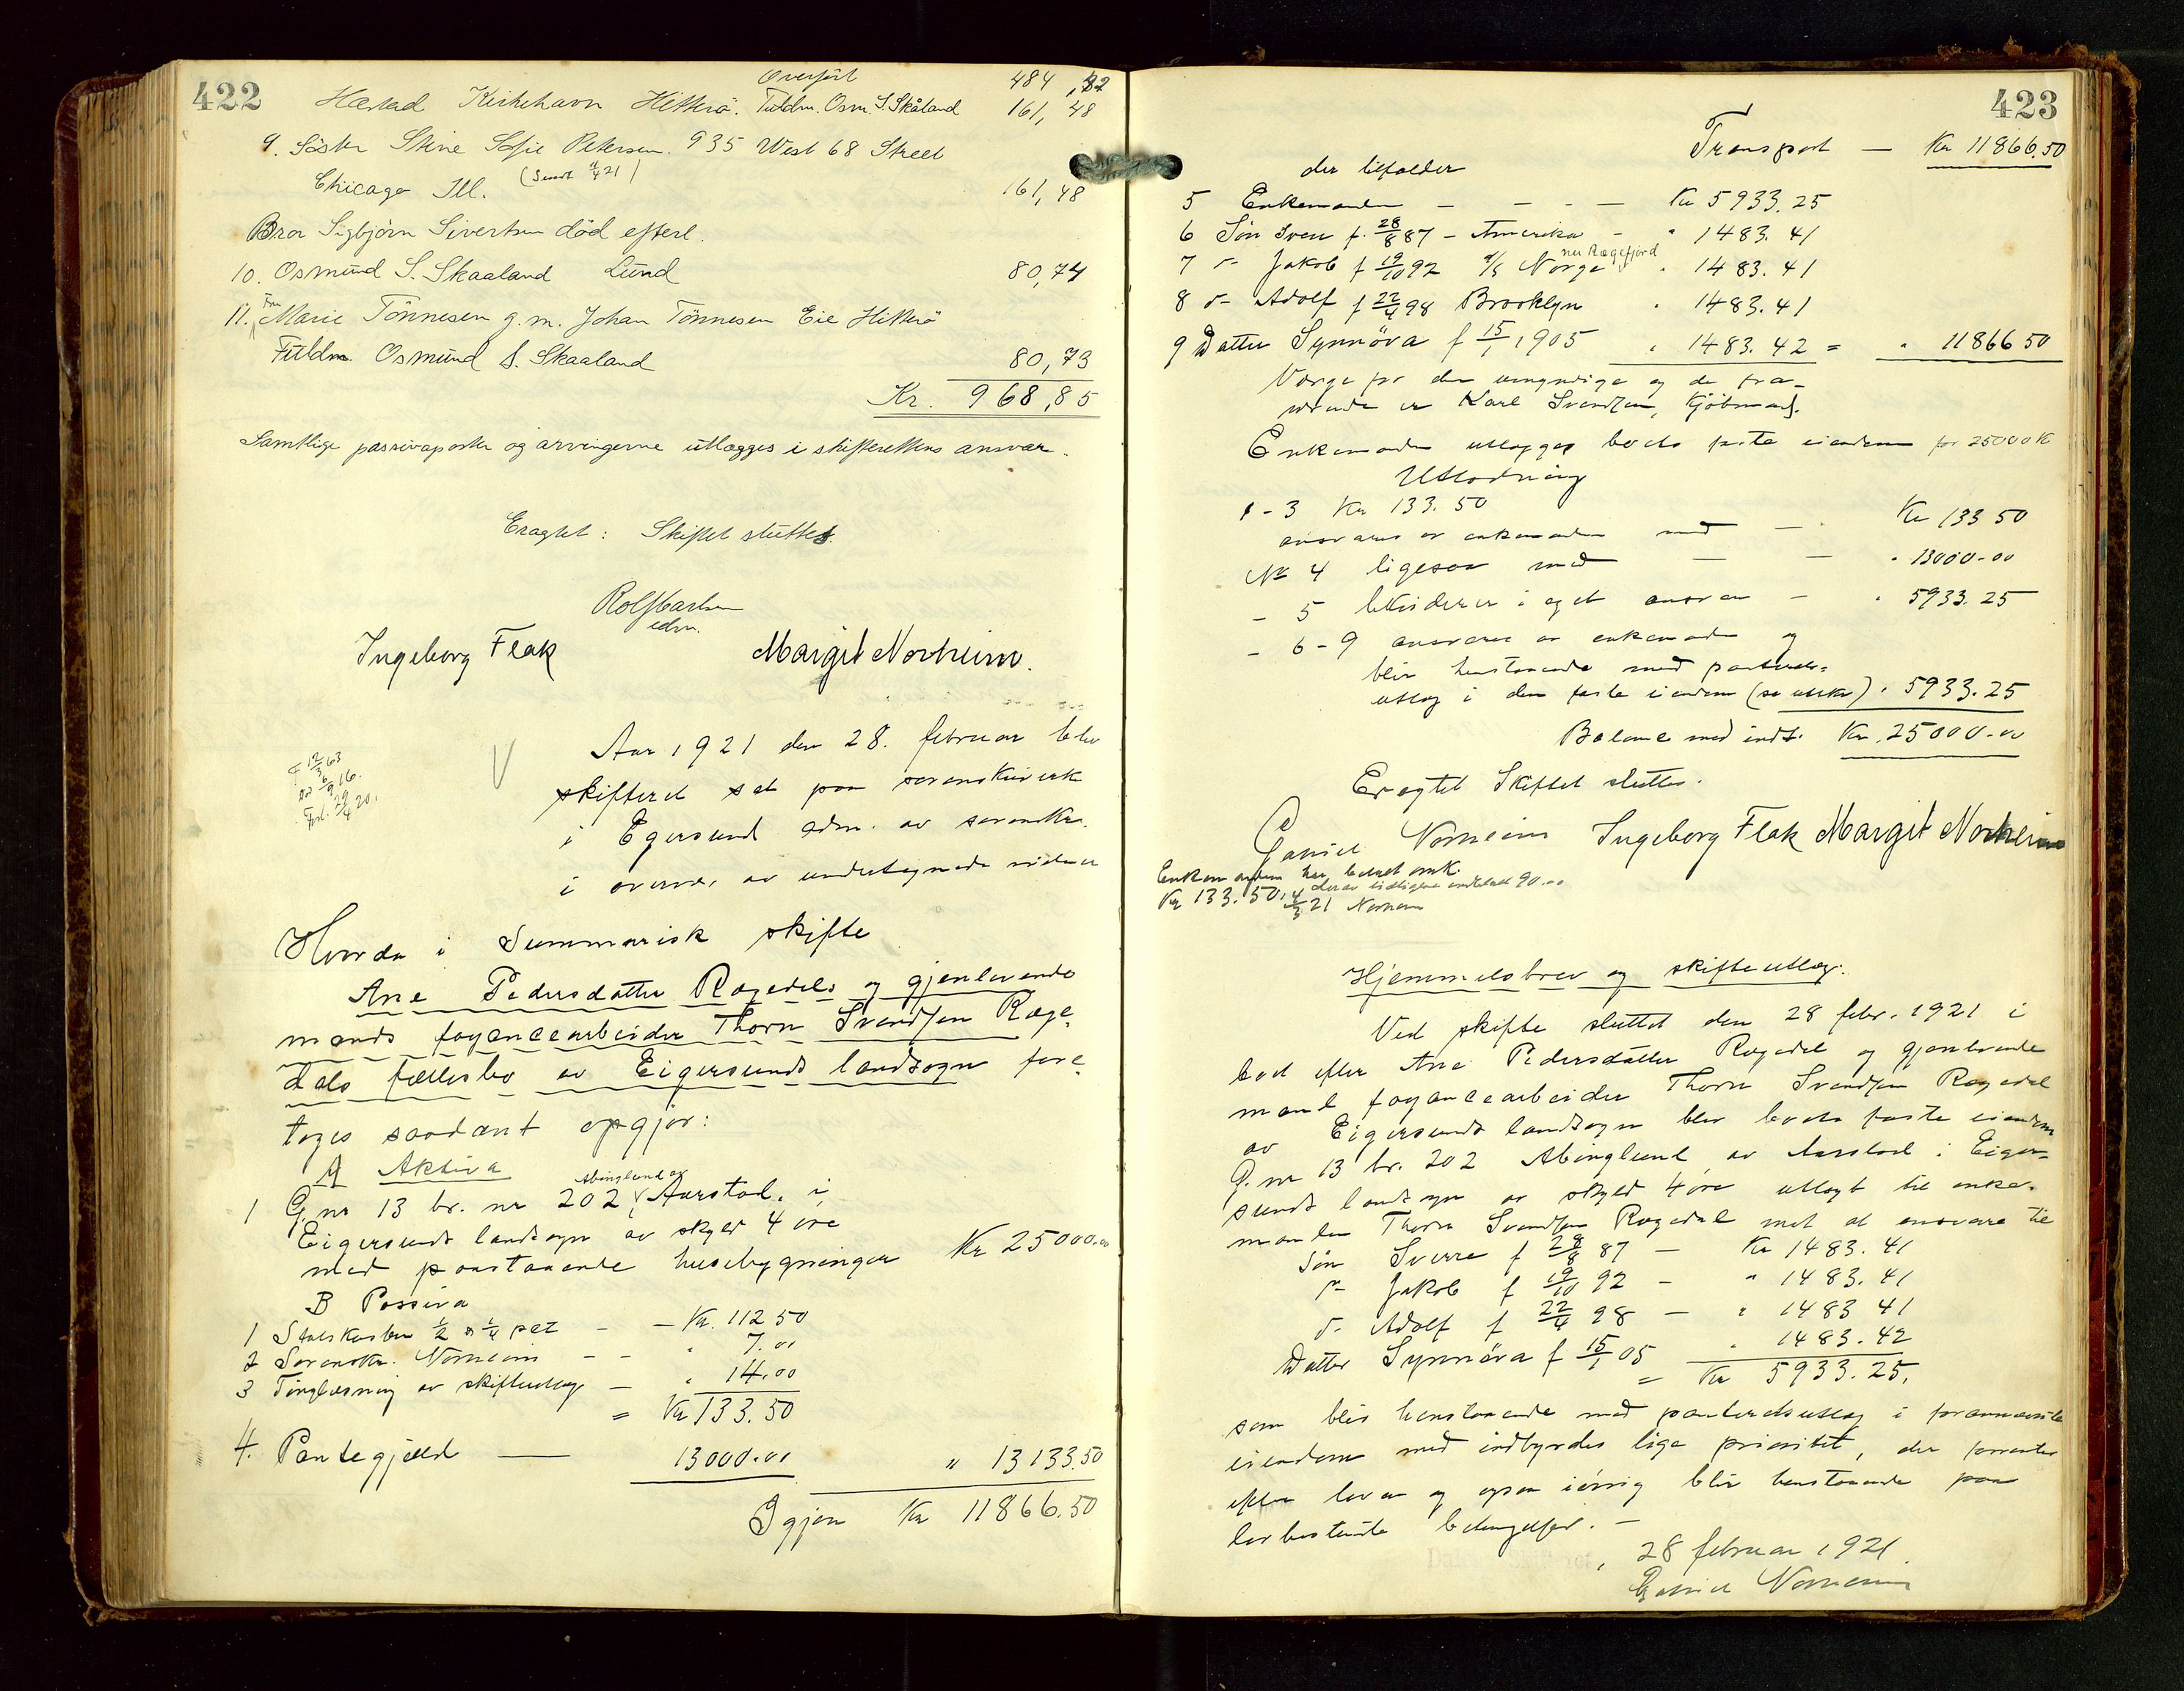 422
Overført 484,42
Hæstad Kirkehavn Hitterö. Fuldm. Osm. S. Skåland 161,48
9. Söster Stine Sofie Petersen. 935 West 68 Street
Chicago Ill. (Sendt 421) 161,48
Bror Sigbjörn Sivertsen död efterl.
10. Osmund S. Skaaland Lund 80,74
11. Fru Marie Tönnesen g.m. Johan Tönnesen Eie Hitterö
Fuldm. Osmund S. Skaaland 80,73
Kr. 968,85
Samtlige passivaposter og arvingerne utlægges i skifterettens ansvar.
Eragtet: Skiftet sluttes.
Rolf Carlsen
edm.
Ingeborg Flak Margit Norheim.
f 12/3 63
Fort. 29/4 20.
Aar 1921 den 28. februar blev
skifteret sat paa sorenskriverk
i Egersund adm. av sorenskr.
i overvær av undertegnede vidner
Hvorda i Summarisk skifte
Ane Pedersdatter Rægedals og gjenlevende
mands fayancearbeider Thorn Svendsen Ræge-
dals fællesbo av Eigersunds landsogn fore-
toges saadant opgjör:
A Aktiva
1 G.nr 13 br. nr 202 Abinglund av Aarstad, i
Eigersunds landsogn av skyld 4 öre
med paastaaende husebygninger Kr 25000.00
B Passiva
1 Statskassen 1/2 & 1/4 pct - - Kr. 112 50
2 Sorenskr. Norheim - - " 7.00
3 Tinglæsning av skifteutlæg - " 14.00
= Kr 133.50
4. Pantegjæld — 13000.00 " 13133.50
Igjen Kr 11866.50
423
Transport — Kr 11866.50
der tilfalder
5 Enkemanden - - - - Kr 5933.25
6 Sön Sven f. 28/8 87 - Amerika - " 1483.41
7 s- Jakob f 19/10 92 d/s Norge nu Rægefjord " 1483.41
8 s- Adolf f 22/4 98 Brooklyn " 1483.41
9 Datter Synnöva f 15/1 1905 " 1483.42 = " 11866 50
Værge for den umyndige og de fra-
værende er Karl Svendsen, Kjöbmand.
Enkemanden utlægges boets faste eiendom for 25000 K
Utlodning
1 - 3 Kr 133.50
ansvares av enkemanden med — Kr 133 50
No 4 ligesaa med — — " 13000-00
- 5 beholder i eget ansvar - " 5933.25
- 6-9 ansvares av enkemanden og
blir henstaaende med panterets-
utlæg i den faste eiendom (se utskr) " 5933.25
Balance med indt. Kr. 25000-00
Eragtet Skiftet sluttes.
Gabriel Norheim Ingeborg Flak Margit Norheim
Enkemanden har betalt omk.
Kr 133.50, derav tidligere indbetalt 90.00
4/3 21 Norheim
Hjemmelsbrev og skifteutlæg.
Ved skifte sluttet den 28 febr. 1921 i
boet efter Ane Pedersdatter Rægedal og gjenlevende
mand fayancearbeider Thorn Svendsen Rægedal
av Eigersunds landsogn blev boets faste eiendom
G. nr 13 br. 202 Abinglund av Aarstad i Eiger-
sunds landsogn av skyld 4 öre utlagt til enke-
manden Thorn Svendsen Rægedal mot at ansvare til
Sön Sverre f 28/8 87 - Kr 1483.41
s- Jakob f 19/10 92 - " 1483.41
s- Adolf f 22/4 98 - " 1483 41
Datter Synnöva f 15/1 05 " 1483.42
= Kr 5933.25.
som blir henstaaende med panteretsutlæg i forannævnte
eiendom med indbyrdes lige prioritet, der forrentes
efter loven og ogsaa iövrig blir henstaaende paa
lovbestemte betingelser. -
28 februar 1921.
Gabriel Norheim